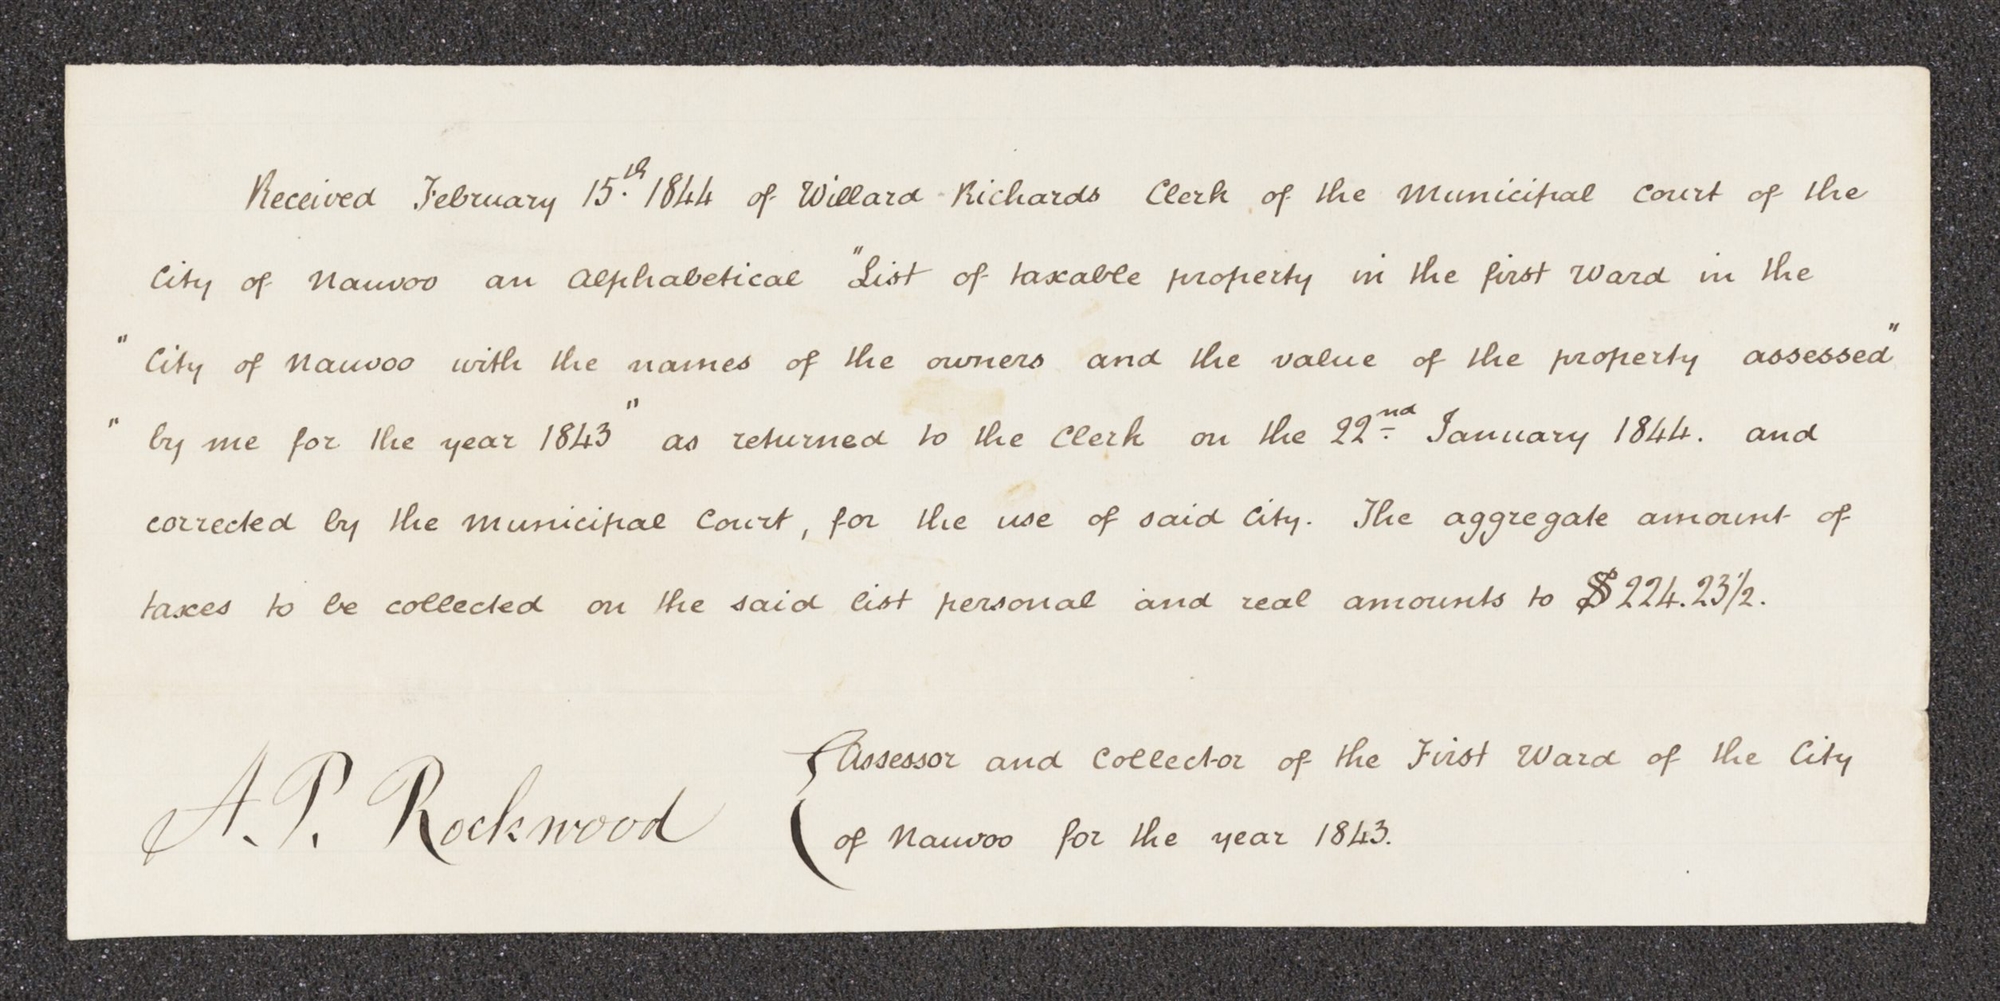 Received February 15.th 1844 of Willard Richards Clerk of the Municipal Court of the
City of Nauvoo an Alphabetical "List of taxable property in the first Ward in the
" City of Nauvoo with the names of the owners and the value of the property assessed"
" by me for the year 1843" as returned to the Clerk on the 22nd January 1844. and
corrected by the Municipal Court, for the use of said City. The aggregate amount of
taxes to be collected on the said list personal and real amounts to $224.23½.
A. P. Rockwood { Assessor and Collector of the First Ward of the City
of Nauvoo for the year 1843.